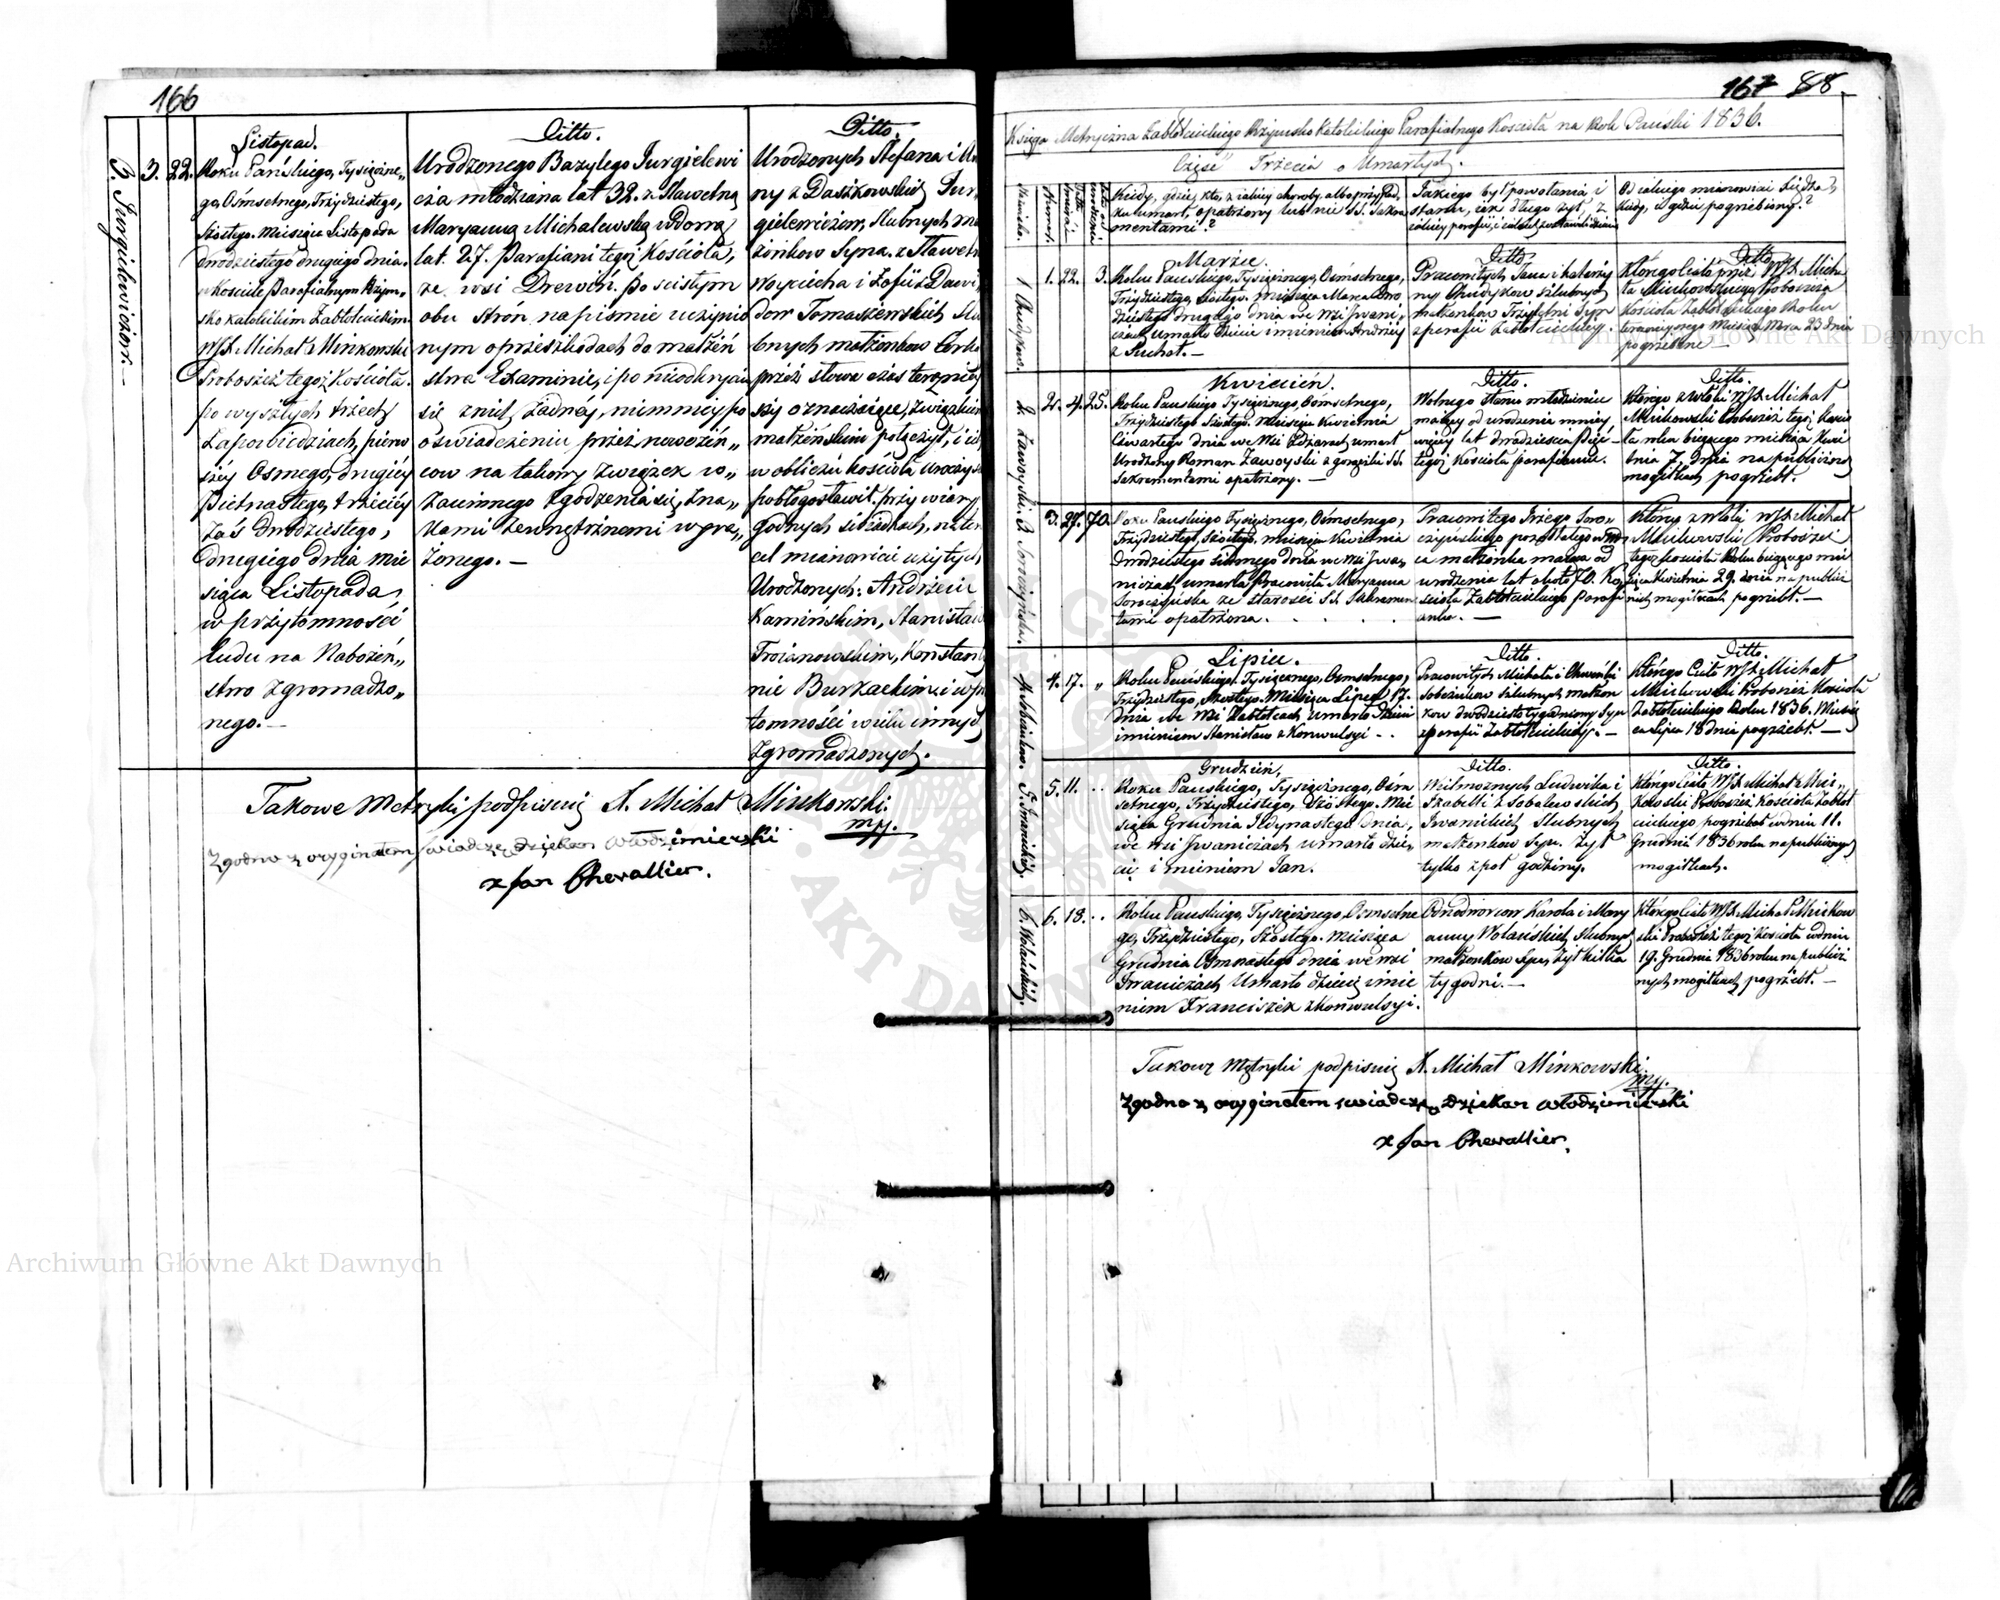 166
B. Jurgielewiczów.
3.
22.
Listopad.
Roku Pańskiego, Tysiączne„
go, Ośmsetnego, Trzydziestego,
Szóstego. Miesiąca Listopada
dwódziestego drugiego dnia.
w Kościele Parafialnym Rzym„
sko katolickim Zabłotcieckim
WJX Michał Minkowski
Proboszcz tegoż Kościoła.
po wyszłych trzech
Zapowiedziach, pierw
széy Osmego, drugiéy
Piétnastego, trzeciéy
Zaś Dwódziestego,
drugiego dnia Mie
siąca Listopada,
w przytomności
ludu na Nabożeń„
stwo zgromadzo„
nego.—
Ditto.
Urodzonego Bazylego Jurgielewi
cza młodziana lat 32. z Sławetną
Maryanną Michalewską wdową
lat. 27. Parafiani tegoż Kościoła,
ze wsi Drewiń. po scistym
obu strón na piśmie uczynio
nym o przeszkodach do małżeń
stwa Examinie, i po nieodkryciu
się znich żadnéy, niemniéy po
oświadczeniu przéz nowożeń„
ców na takowy związek w„
zaiemnego zgodzenia się zna„
kami zewnętrznemi wyra„
żonego.—
Ditto.
Urodzonych Stefana i An
ny z Daszkowskich Jur
gielewiczów, Slubnych mał
żonków Syna. z Sławetn
Woyciecha i Zofii z Dawi
dów Tomaszewskich Slu
bnych małżonków Córką
przéz słowa czas teraźniéy
szy oznaczaiące, związkiem
małżeńskim połączył, i ich
w obliczu kościoła uroczyście
pobłogosławił. przy wiary
godnych świadkach, na ten
cel mianowicie użytych
Urodzonych: Andrzeiu
Kamińskim, Stanisław
Troianowskim, Konstan
nie Burkackim: i w przy
tomności wielu innych
zgromadzonych.
Takowe Metryki podpisuię X. Michał Minkowski.
mp.
Zgodno z oryginałem świadczę dziekan włodzimierski
x Jan Chevallier.
167 88.
Księga Metryczna Zabłotcieckiego Rzymsko Katolickiego Parafialnego Kościoła na Rok Pański 1836.
Część Trzecia o Umarłych.
Kiedy, gdzie, kto, z iakiey choroby, albo przypad
ku umarł, opatrzony lub nie SS. Sakra
mentami?
Jakiego był powołania i
stanu, iak długo żył, z
iakiey parafii, i iakich zostawił dzieci
Od iakiego mianowicie Xiędza,
kiedy, i gdzie pogrzebiony?
1 Chudykow.
1.
22.
3.
Marzec.
Roku Pańskiego, Tysiącznego, Ośmsetnego,
Trzydziestego, Szóstego. miesiąca Marca Dwó
dziestego drugiego dnia we wsi Iwani„
czach umarło dziecie imieniem Andrzéy
z Suchot.—
Ditto.
Pracowitych Jana i Katarzy
ny Chudyków szlubnych
małżonków Trzyletni Syn
z parafii Zabłotcieckiey.
Ditto.
Którego Ciało przez WJX. Micha
ła Minkowskiego, Proboszcza
Kościoła Zabłotcieckiego Roku
teraznieyszego Miesiąca Marca 23 dnia
pogrzebione—
2. Zawoyski.
2.
4.
25.
Kwiecień.
Roku Pańskiego Tysiącznego, Ośmsetnego,
Trzydziestego Szóstego. Miesiąca Kwietnia
Czwartego dnia we wsi Zdżarach umarł
Urodzony Roman Zawoyski z gorączki SS.
Sakramentami opatrzony.—
Ditto.
Wolnego stanu młodzieniec
maiący od urodzenia mniey
więcéy lat dwadzieścia pięć—
tegoż Kościoła parafianin.
Ditto.
Którego zwłoki WJX. Michał
Minkowski Proboszcz tegoż Kościo
ła roku bieżącego miesiąca Kwie
tnia 7. dnia na publicznych
mogiłkach pogrzebł.
3.
27.
70.
Roku Pańskiego Tysiącznego, Ośmsetnego,
Trzydziestego, Szóstego, miesiąca Kwietnia
Dwódziestego siódmego dnia we wsi Iwa„
niczach umarła Pracowita Maryanna
ze starości SS. Sakramen
tami opatrzona.
małżonka maiąca od
urodzenia lat około 70. Ko„
ścioła Zabłotcieckiego Parafi
anka.—
Którey zwłoki WJX. Michał
Minkowski Proboszcz
tegoż Kościoła Roku bieżącego mie
siąca Kwietnia 29. dnia na publicz
nych mogiłkach pogrzebł.—
4.
17.
„
Lipiec.
Roku Pańskiego, Tysiącznego, Ośmsetnego,
Trzydziestego, Szóstego. Miesiąca Lipca 17.
dnia we wsi Zabłotcach umarło dziecie
imieniem Stanisław z Konwulsyi - -
Ditto.
Pracowitych Michała i
szlubnych małżon
ków dwódziestotygodniowy Syn
z parafii Zabłotcieckiéy.—
Ditto.
Którego Ciało WJX. Michał
Minkowski Proboszcz Kościoła
Zabłotcieckiego Roku 1836. Miesią
ca Lipca 18 dnia pogrzebł.—
5. Iwanickich.
5.
11.
Grudzień,
Roku Pańskiego, Tysiącznego, Ośm
setnego, Trzydziestego, Szóstego. Mie
siąca Grudnia Jedynastego dnia,
we wsi Iwaniczach umarło dzie„
cię imieniem Jan.
Ditto.
Wielmożnych Ludwika i
Izabelli z Sobolewskich
Iwanickich Slubnych
małżonków Syn. Żył
tylko z puł godziny.
Ditto.
Którego Ciało WJX. Michał Min„
kowski Proboszcz Kościoła Zabłot
cieckiego pogrzebał w dniu 11.
Grudnia 1836 roku na publicznych
mogiłkach.
6. Wolańskich.
6.
18.
Roku Pańskiego, Tysiącznego, Ośmsetne
go, Trzydziestego, Szóstego. Miesiąca
Grudnia Ośmnastego dnia we wsi
Iwaniczach Umarło dziecię imie
niem Franciszek z Konwulsyi.
Odnodworców Karola i Mary
anny Wolańskich, Slubnych
małżonków Syn, żył kilka
tygodni.—
Którego Ciało WJX. Michał Minkow
ski Proboszcz tegoż Kościoła w dniu
19. Grudnia 1836 roku na publicz
nych mogiłkach pogrzebł.—
Takowe Metryki podpisuię X. Michał Minkowski.
mp.
Zgodno z oryginałem świadczę, dziekan włodzimierski
x Jan Chevallier.
Archiwum Główne Akt Dawnych
Archiwum Główne Akt Dawnych